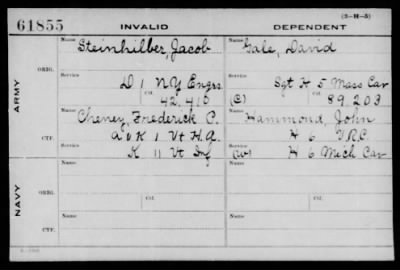 (3-H-5)
61855 INVALID DEPENDENT
Name Steinhilber, Jacob Name Gale, David
ORIG.
Service D 1 N Y Engrs Service Sgt H 5 Mass Cav
Ctf. 42,410 (C) Ctf. 89,203
ARMY
Name Cheney, Frederick P. Name Hammond, John
CTF. L & K 1 Vt H.A. H 6 V.R.C.
Service K 11 Vt Inf Service (W) H 6 Mich Cav
Name Name
ORIG.
Service Ctf. Service Ctf.
NAVY
Name Name
CTF.
Service Service